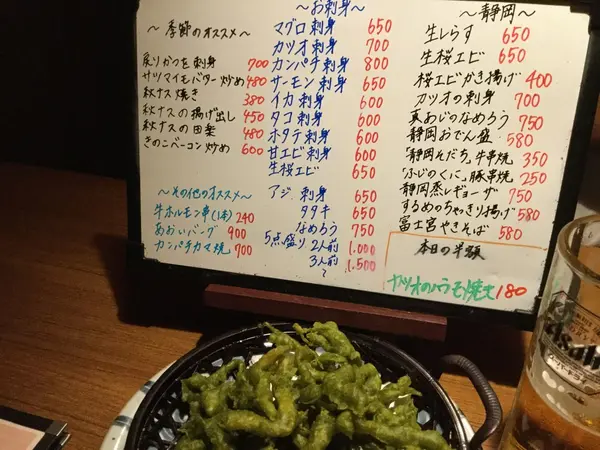 ～季節のオススメ～
戻りかつを刺身 700
サツマイモバター炒め 480
秋ナス焼き 380
秋ナスの揚げ出し 450
秋ナスの田楽 480
きのこベーコン炒め 600
～その他のオススメ～
牛ホルモン串(1本) 240
あおいバーグ 900
カンパチカマ焼 700
～お刺身～
マグロ刺身 650
カツオ刺身 700
カンパチ刺身 800
サーモン刺身 650
イカ刺身 600
タコ刺身 600
ホタテ刺身 600
甘エビ刺身 600
生桜エビ 650
アジ 刺身 650
タタキ 650
なめろう 750
5点盛り 2人前 1,000
3人前 1,500
～
～静岡～
生しらす 650
生桜エビ 650
桜エビかき揚げ 400
カツオの刺身 700
真あじのなめろう 750
静岡おでん盛 580
「静岡そだち」牛串焼 350
「ふじのくに」豚串焼 250
静岡蒸しギョーザ 750
するめのちゃきり揚げ 580
富士宮やきそば 580
本日の半額
カツオのハラモ焼き 180
Asahi